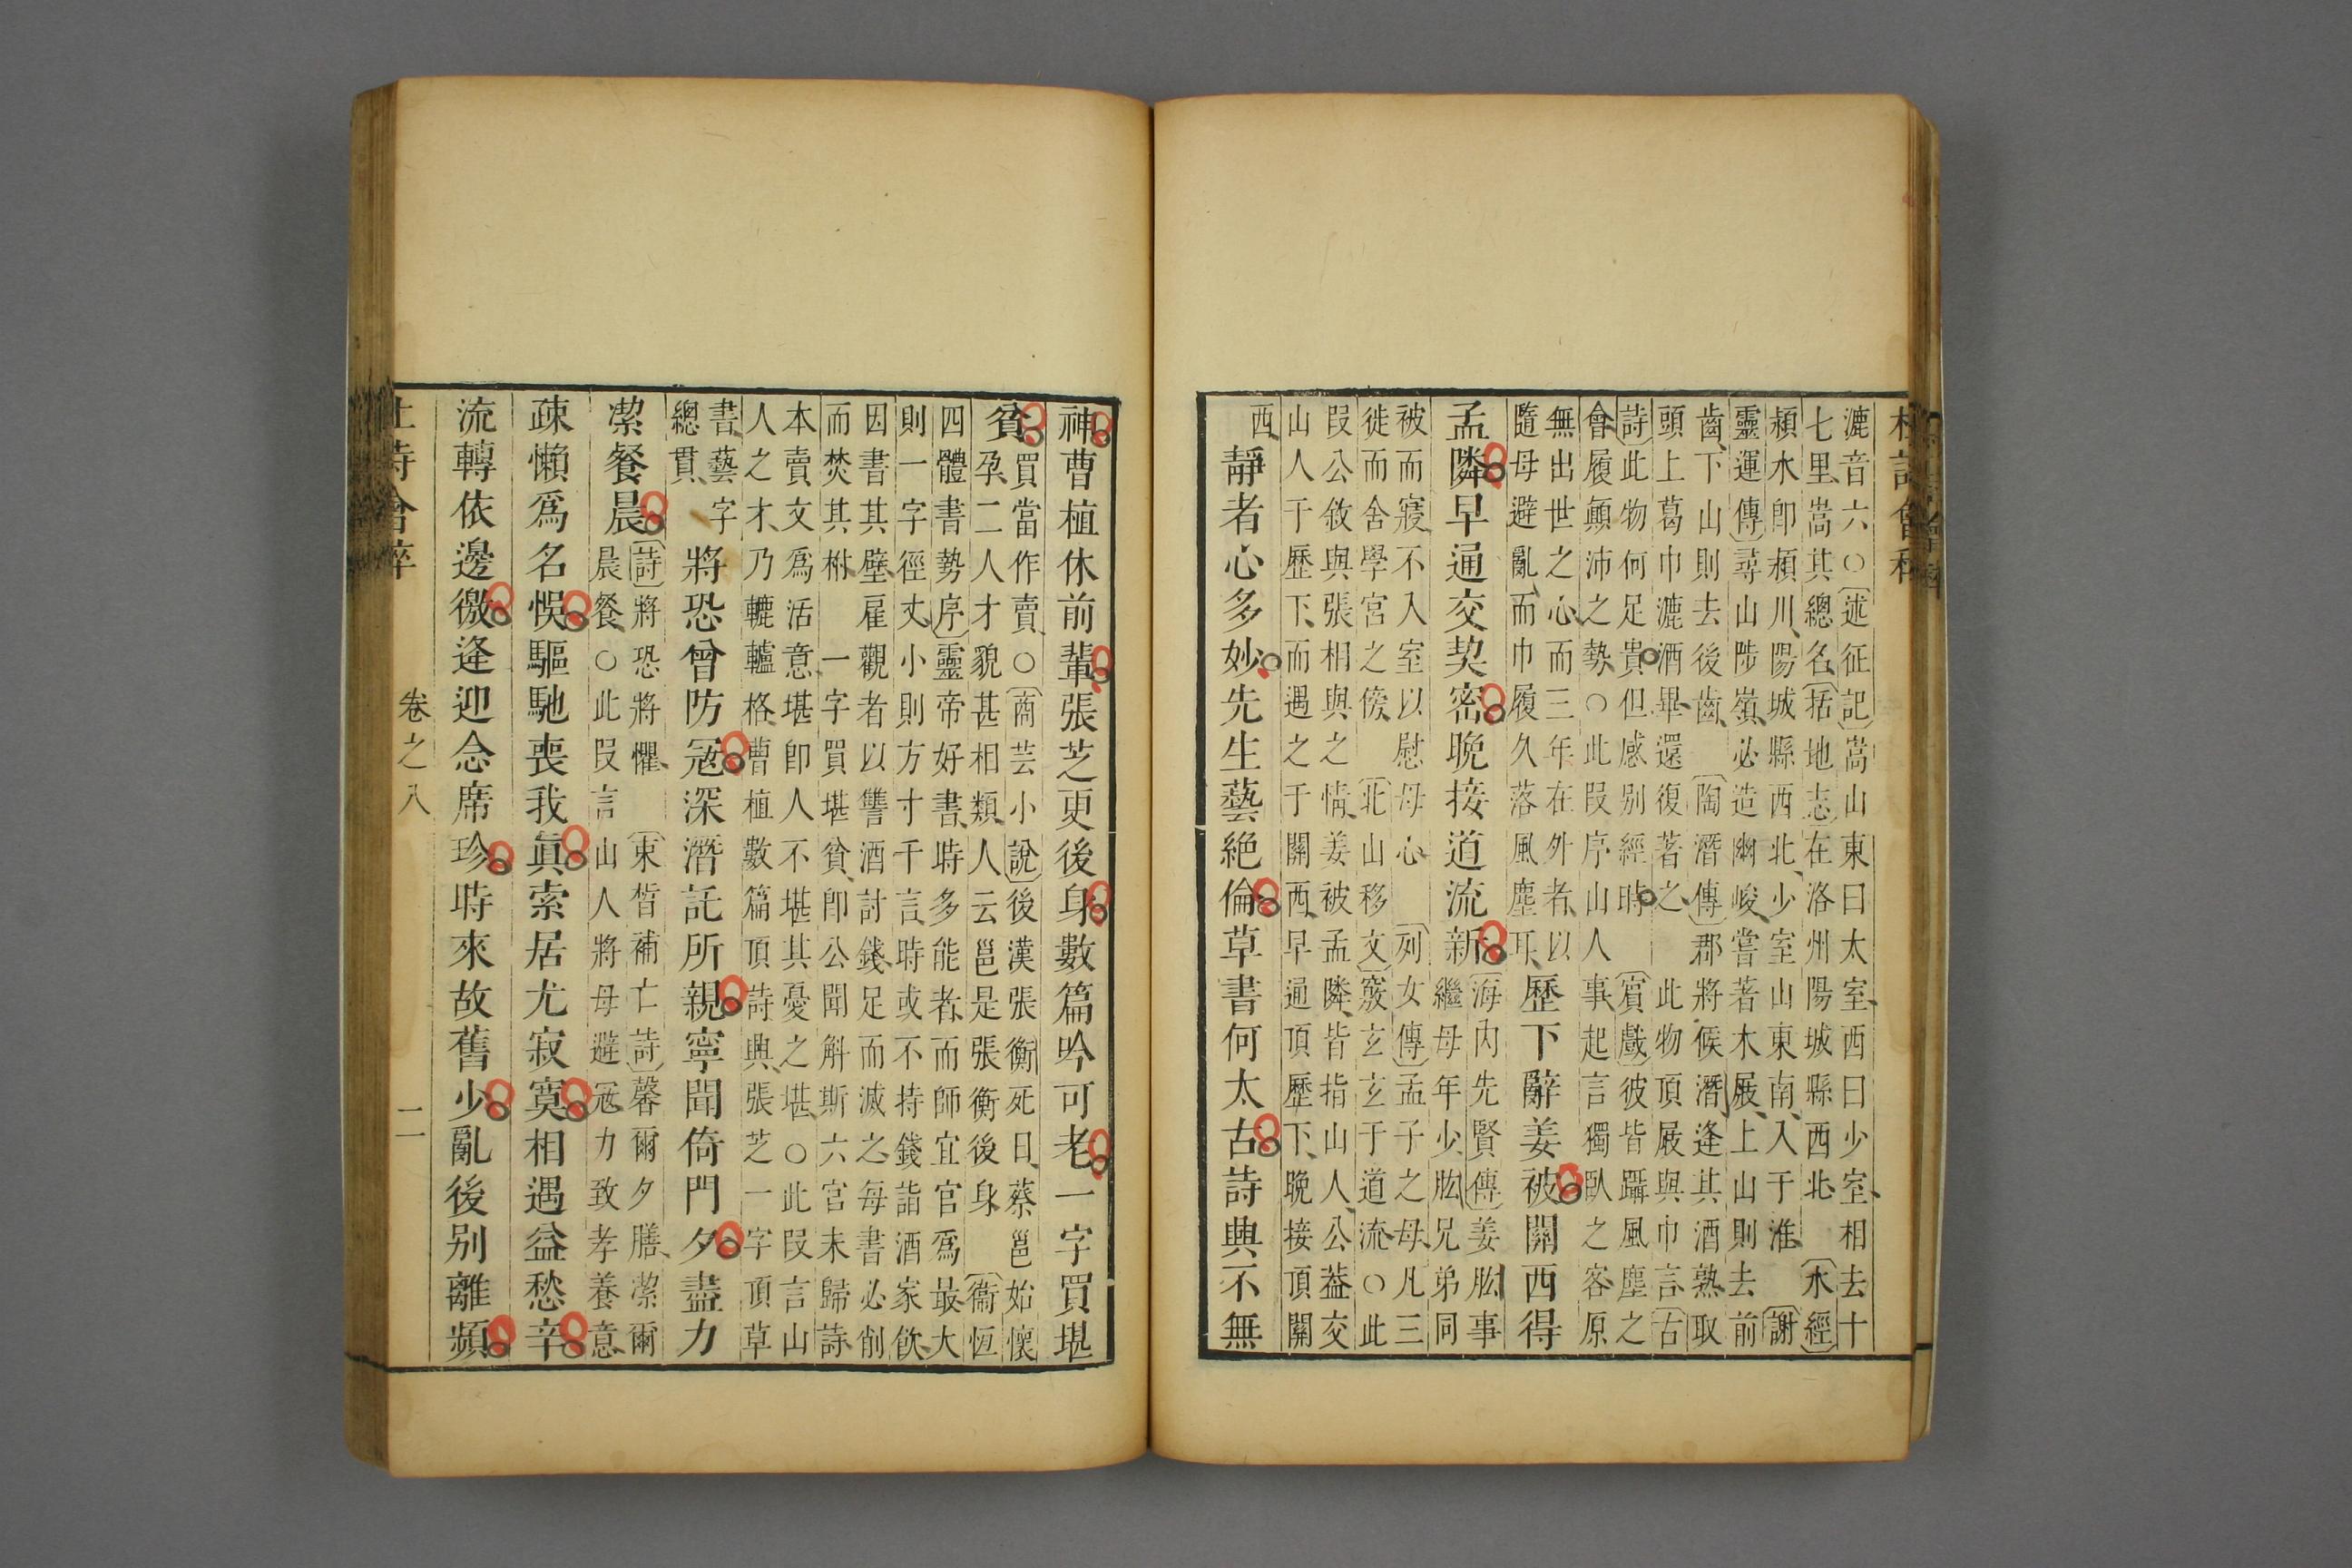 漉音六○〔述征記〕嵩山東曰太室、西曰少室、相去十
七里嵩其總名〔括地志〕在洛州陽城縣西北〔水經〕
潁水即潁川、陽城縣西北、少室山東南入于淮〔謝
靈運傳〕尋山陟嶺、必造幽峻嘗著木屐、上山則去前
齒、下山則去後齒〔陶潛傳〕郡將候潛逢其酒熟取
頭上葛巾漉酒畢還復著之、此物頂屐與巾言〔古
詩〕此物何足貴但感別經時〔賓戲〕彼皆躡風塵之
會履顛沛之勢○此段序山人事起言獨臥之客原
無出世之心而三年在外者以
隨母避亂而巾履久落風塵耳
歷下辭姜被關西得
孟隣早通交契密晚接道流新
〔海內先賢傳〕姜肱事
繼母年少肱兄弟同
被而寢不入室以慰母心〔列女傳〕孟子之母凡三
徙而舍學宮之傍〔北山移文〕竅玄玄于道流○此
段公敘與張相與之情姜被孟隣皆指山人公蓋交
山人于歷下而遇之于關西早通頂歷下晚接頂關
西
靜者心多妙先生藝絕倫草書何太古詩興不無
神曹植休前輩張芝更後身數篇吟可老一字買堪
貧
買當作賣○〔商芸小說〕後漢張衡死日蔡邕始懷
孕二人才貌甚相類人云邕是張衡後身〔衞恆
四體書勢序〕靈帝好書時多能者而師宜官爲最大
則一字徑丈小則方寸千言時或不持錢詣酒家飲
因書其壁雇觀者以讐酒討錢足而滅之每書必削
而焚其柎 一字買堪貧即公聞斛斯六官未歸詩
本賣文爲活意堪即人不堪其憂之堪○此段言山
人之才乃轆轤格曹植數篇頂詩興張芝一字頂草
書藝字
總貫
將恐曾防寇深潛託所親寧聞倚門夕盡力
潔餐晨
〔詩〕將恐將懼〔束皙補亡詩〕馨爾夕膳潔爾
晨餐○此段言山人將母避寇力致孝養意
疎懶爲名悞驅馳喪我眞索居尤寂寞相遇益愁辛
流轉依邊徼逢迎念席珍時來故舊少亂後别離頻
卷之八
二